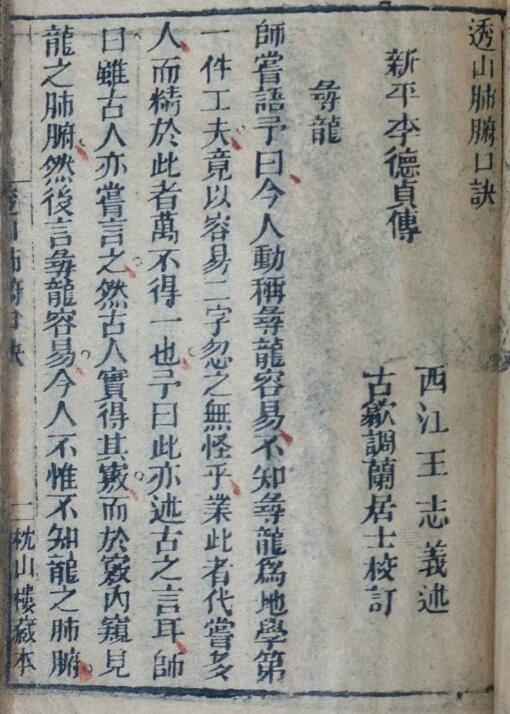 透山肺腑口訣
新平李德貞傳
西江王志義述
古歙調蘭居士校訂
尋龍
師嘗語予曰今人動稱尋龍容易不知尋龍為地學第
一件工夫竟以容易二字忽之無怪乎業此者代嘗多
人而精於此者萬不得一也予曰此亦述古之言耳師
曰雖古人亦嘗言之然古人實得其竅而於竅內窺見
龍之肺腑然後言尋龍容易今人不惟不知龍之肺腑
透山肺腑口訣
二
枕山樓藏本